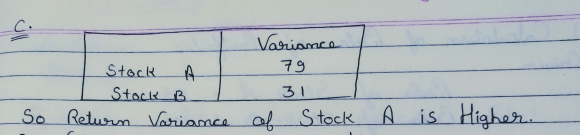 C.
Variance
Stock A 79
Stock B 31
So Return Variance of Stock A is Higher.